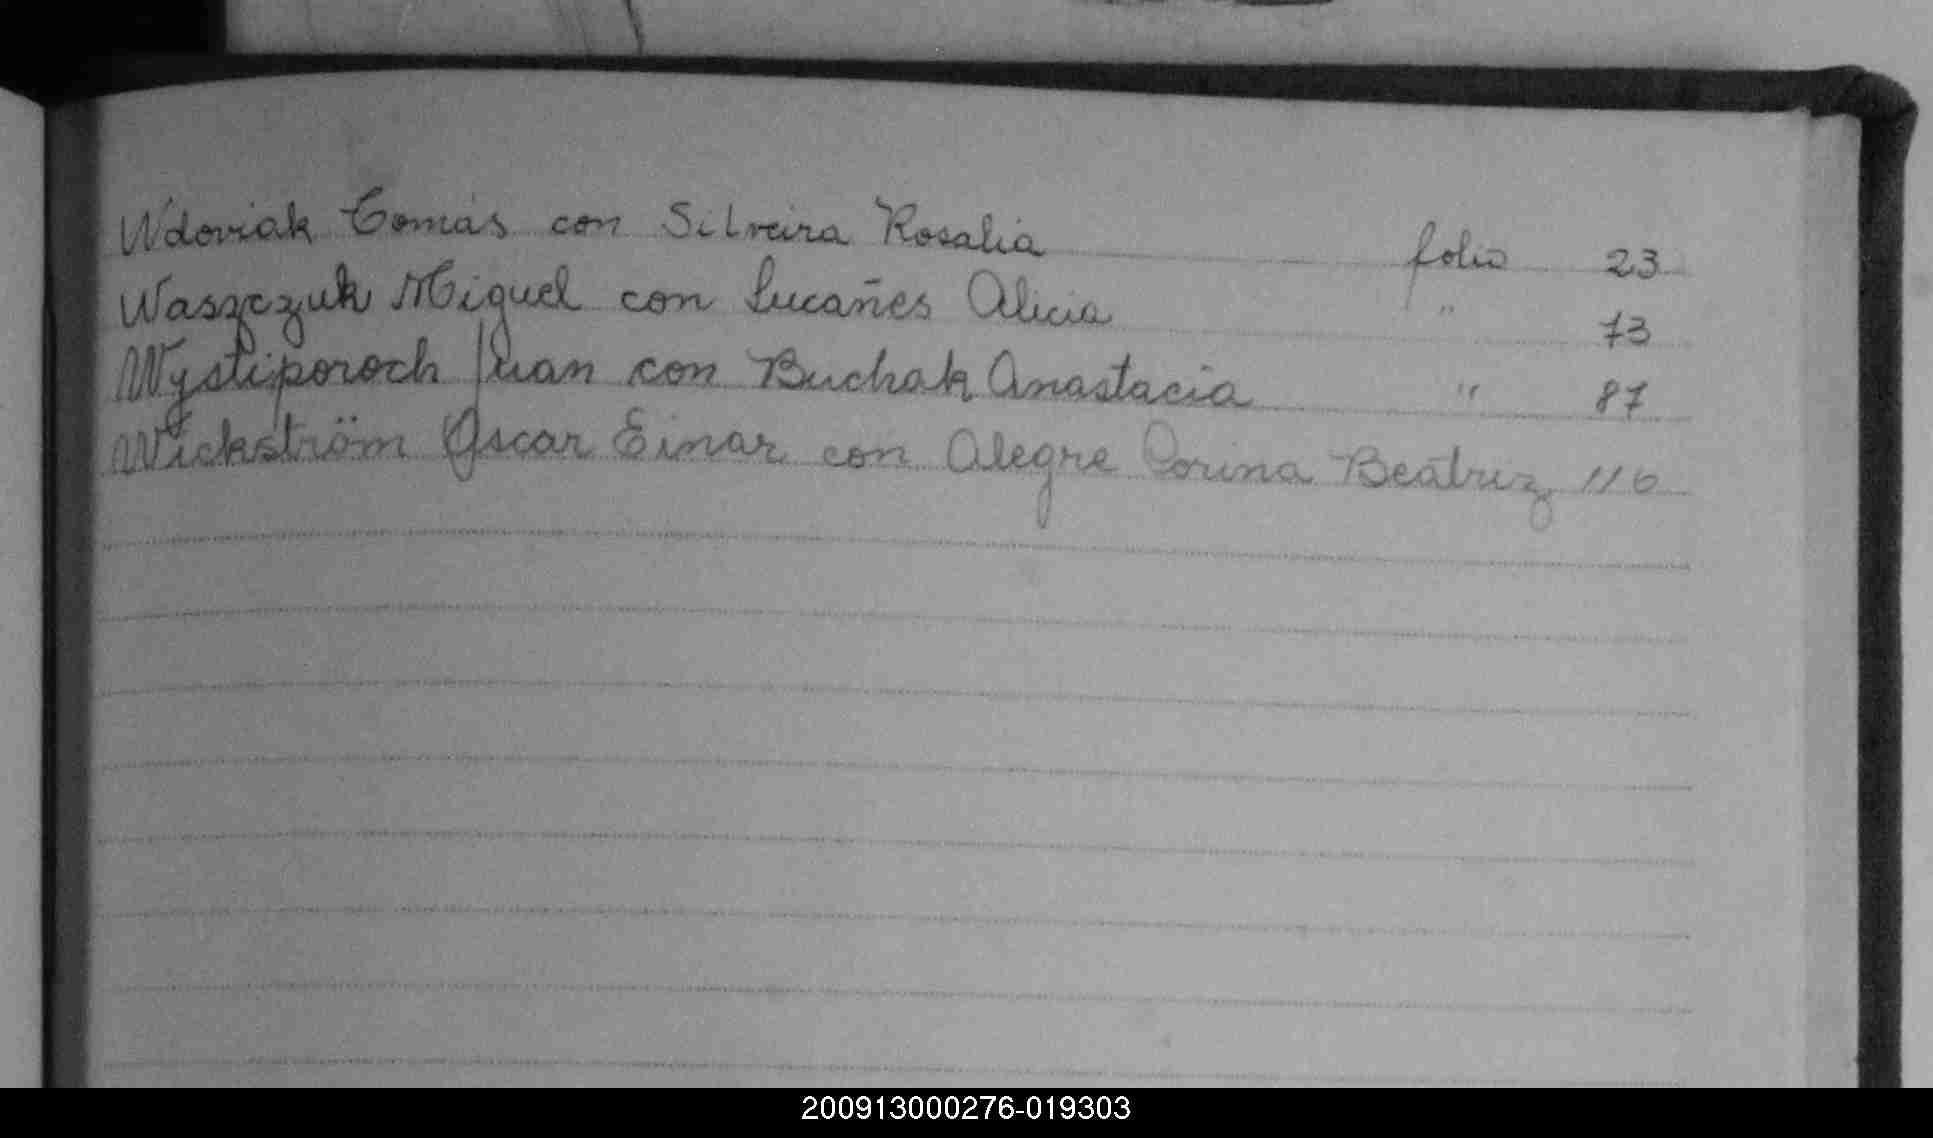 Wdoviak Tomás con Silveira Rosalia folio 23
Waszczuk Miguel con Lucañes Alicia " 73
Wystiporoch Juan con Buchak Anastacia " 87
Wickström Oscar Einar con Alegre Corina Beatriz 116
200913000276-019303